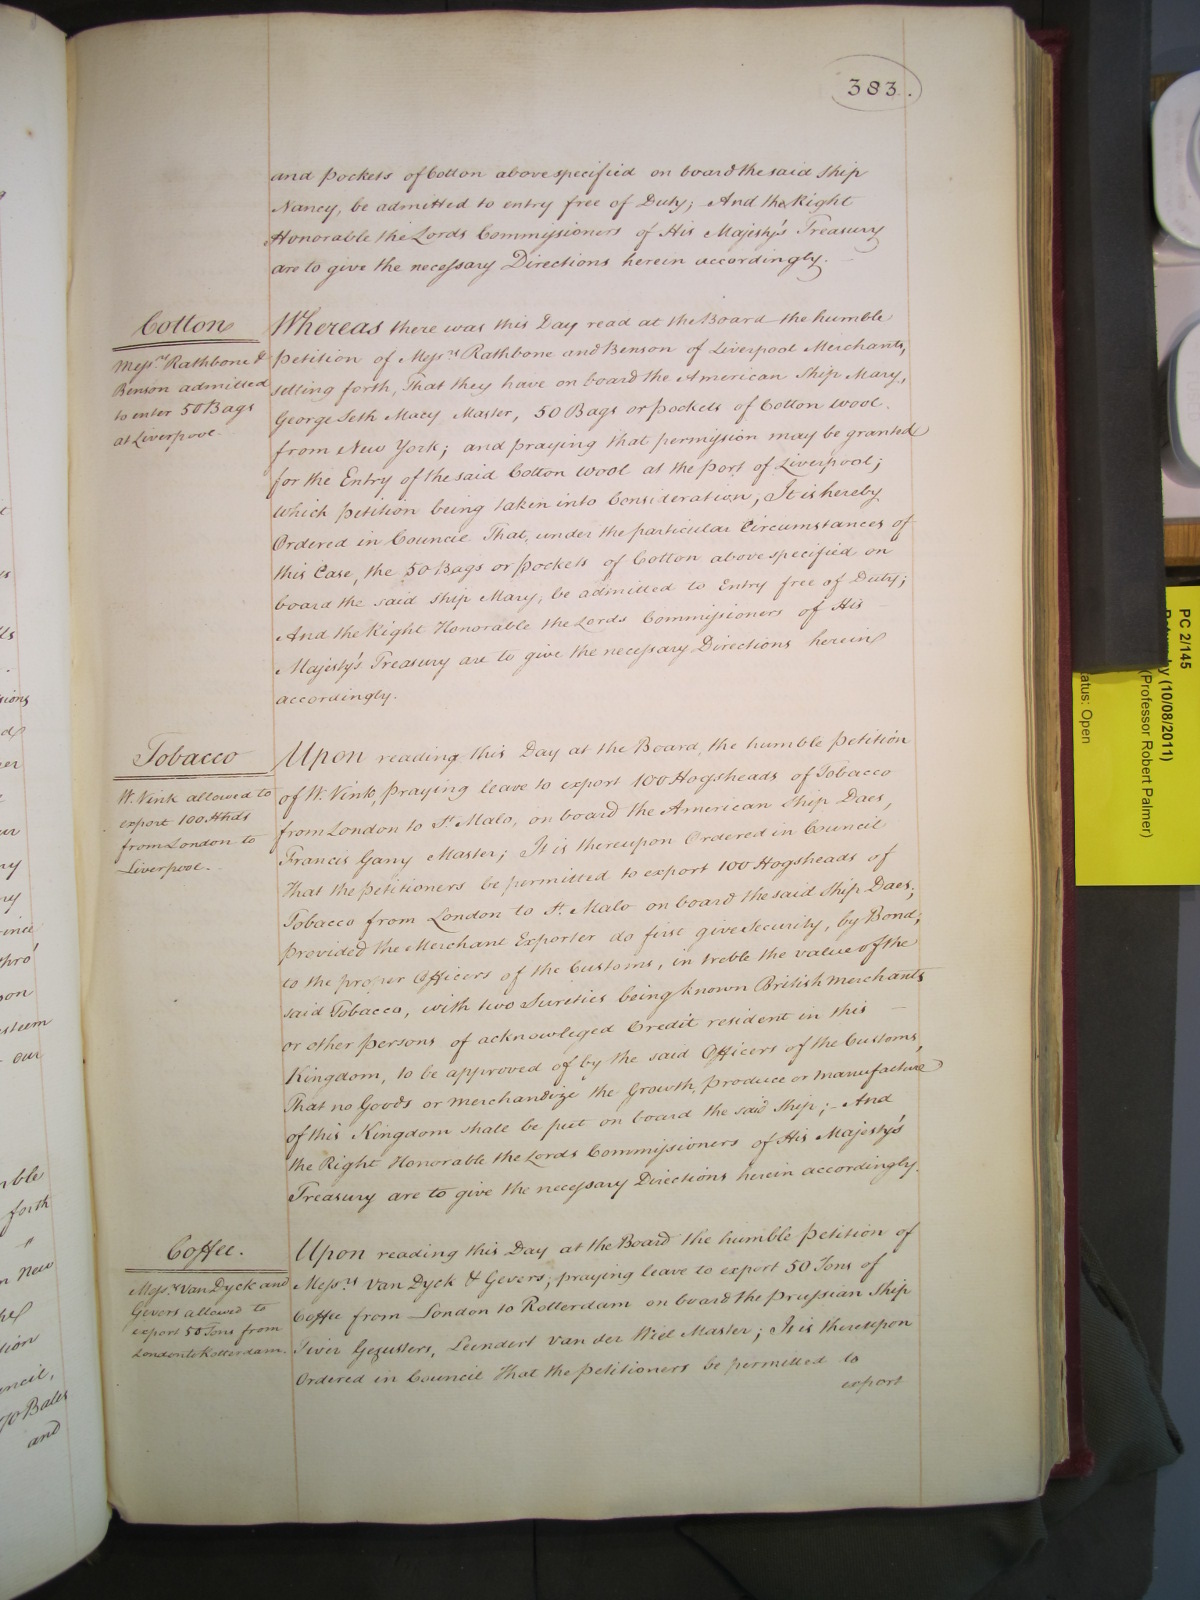 383.
and pockets of Cotton above specified on board the said Ship
Nancy, be admitted to entry free of Duty; And the Right
Honorable the Lords Commissioners of His Majesty's Treasury
are to give the necessary Directions herein accordingly.
Cotton
Messrs Rathbone &
Benson admitted
to enter 50 Bags
at Liverpool.
Whereas there was this Day read at the Board the humble
Petition of Messrs Rathbone and Benson of Liverpool Merchants,
setting forth, That they have on board the American Ship Mary,
George Seth Macy Master, 50 Bags or pockets of Cotton wool
from New York; and praying that permission may be granted
for the Entry of the said Cotton wool at the port of Liverpool;
which petition being taken into Consideration, It is hereby
Ordered in Council That, under the particular Circumstances of
this Case, the 50 Bags or pockets of Cotton above specified on
board the said Ship Mary, be admitted to Entry free of Duty;
And the Right Honorable the Lords Commissioners of His
Majesty's Treasury are to give the necessary Directions herein
accordingly.
Tobacco
W. Vink allowed to
export 100 Hhds
from London to
Liverpool.
Upon reading this Day at the Board, the humble Petition
of W. Vink, praying leave to export 100 Hogsheads of Tobacco
from London to St. Malo, on board the American Ship Daes,
Francis Gany Master; It is thereupon Ordered in Council
That the Petitioners be permitted to export 100 Hogsheads of
Tobacco from London to St. Malo on board the said Ship Daes;
provided the Merchant Exporter do first give Security, by Bond;
to the proper Officers of the Customs, in treble the value of the
said Tobacco, with two Sureties being known British merchants
or other persons of acknowleged Credit resident in this
Kingdom, to be approved of by the said Officers of the Customs,
That no Goods or merchandize the Growth, produce or manufacture
of this Kingdom shall be put on board the said Ship; - And
the Right Honorable the Lords Commissioners of His Majesty's
Treasury are to give the necessary Directions herein accordingly.
Coffee.
Messrs Van Dyck and
Gevers allowed to
export 50 Tons from
London to Rotterdam.
Upon reading this Day at the Board the humble Petition of
Messrs Van Dyck & Gevers, praying leave to export 50 Tons of
Coffee from London to Rotterdam on board the Prussian Ship
Tiver Gezusters, Leendert van der Wiel Master; It is thereupon
Ordered in Council That the petitioners be permitted to
export
PC 2/145
by (10/08/2011)
(Professor Robert Palmer)
atus: Open